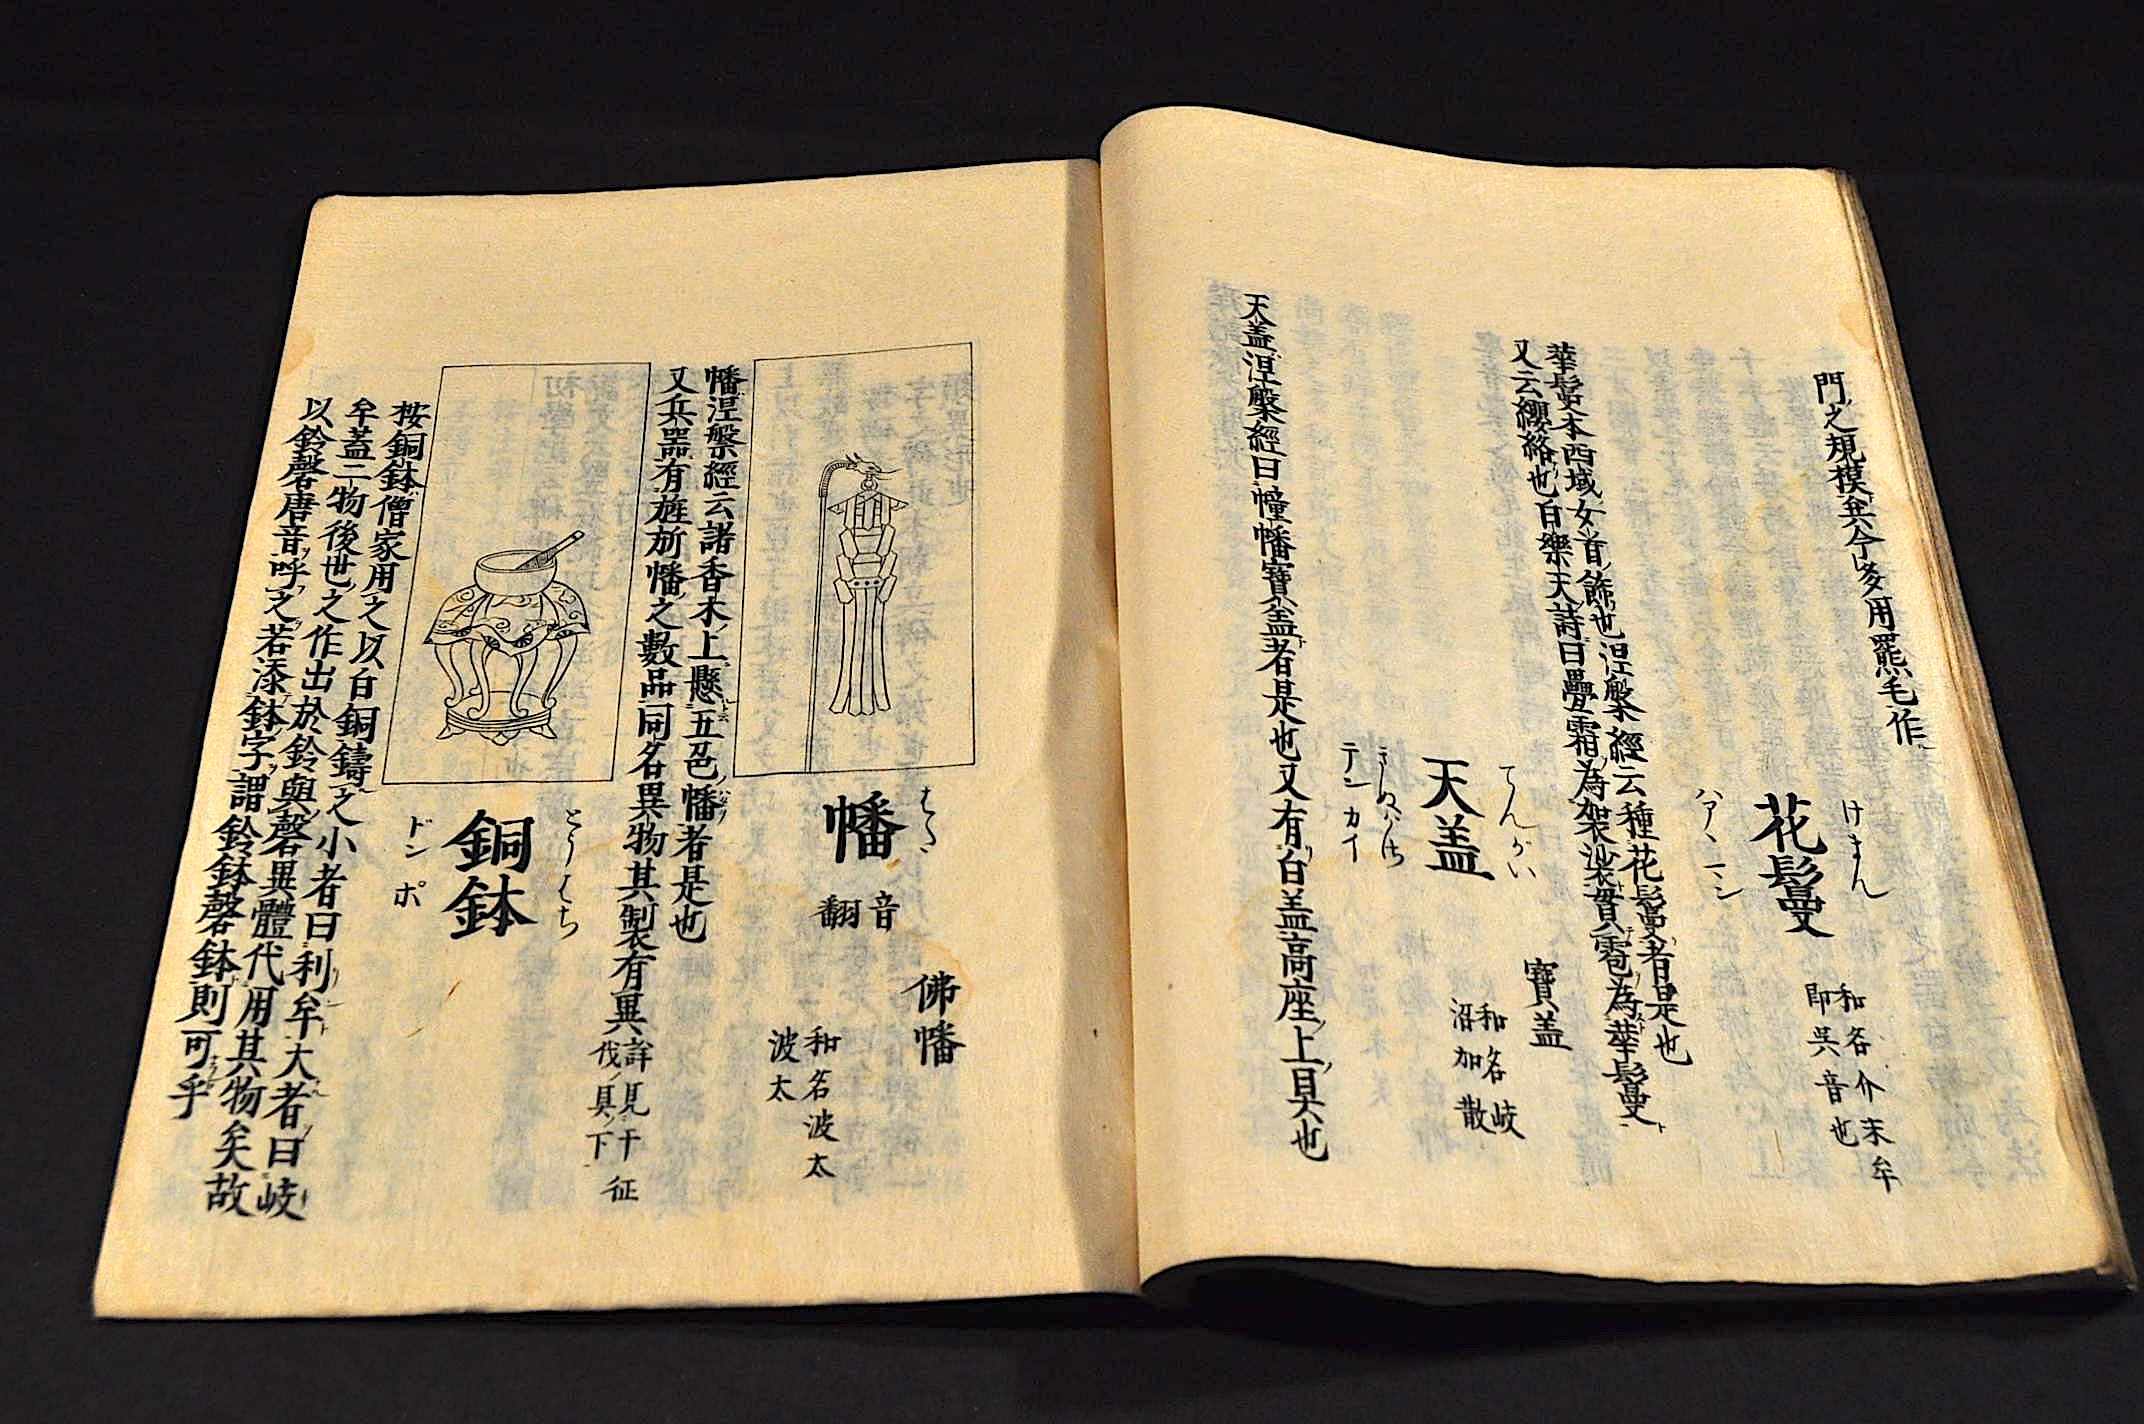 門之規模矣今多用羆毛作
けまん
花鬘
ハアマン
和名介末牟
即呉音也
華鬘本西域女首飾也涅槃經云種花鬘者是也
又云纓絡也白樂天詩曰疊霜為袈裟貫雹為華鬘
てんがい
天盖
きぬがさ
テンカイ
寶盖
和名岐
沼加散
天盖涅槃經曰幢幡寶盖者是也又有白盖高座上具也
はた
幡
音
翻
佛幡
和名波太
波太
幡涅槃經云諸香木上懸五色幡者是也
又兵器有旌斾幡之數品同名異物其製有異
詳見于征
伐具下
とうはち
銅鉢
ドンポ
按銅鉢僧家用之以白銅鑄之小者曰利牟大者曰岐
牟蓋二物後世之作出於鈴與磬異體代用其物矣故
以鈴磬唐音呼之若添鉢字謂鈴鉢磬鉢則可乎